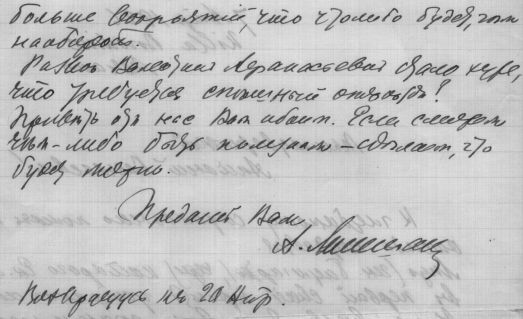 больше вероятий, что что-либо будет, чем
наоборот.
Разве Валентине Афанасьевне стало хуже,
что требуется спешный отъезд?
Привет от нас Вам обоим. Если сможем
чем-либо быть полезны – сделаем, что
будет можно.
Преданный Вам
А.
Возвращусь на 20